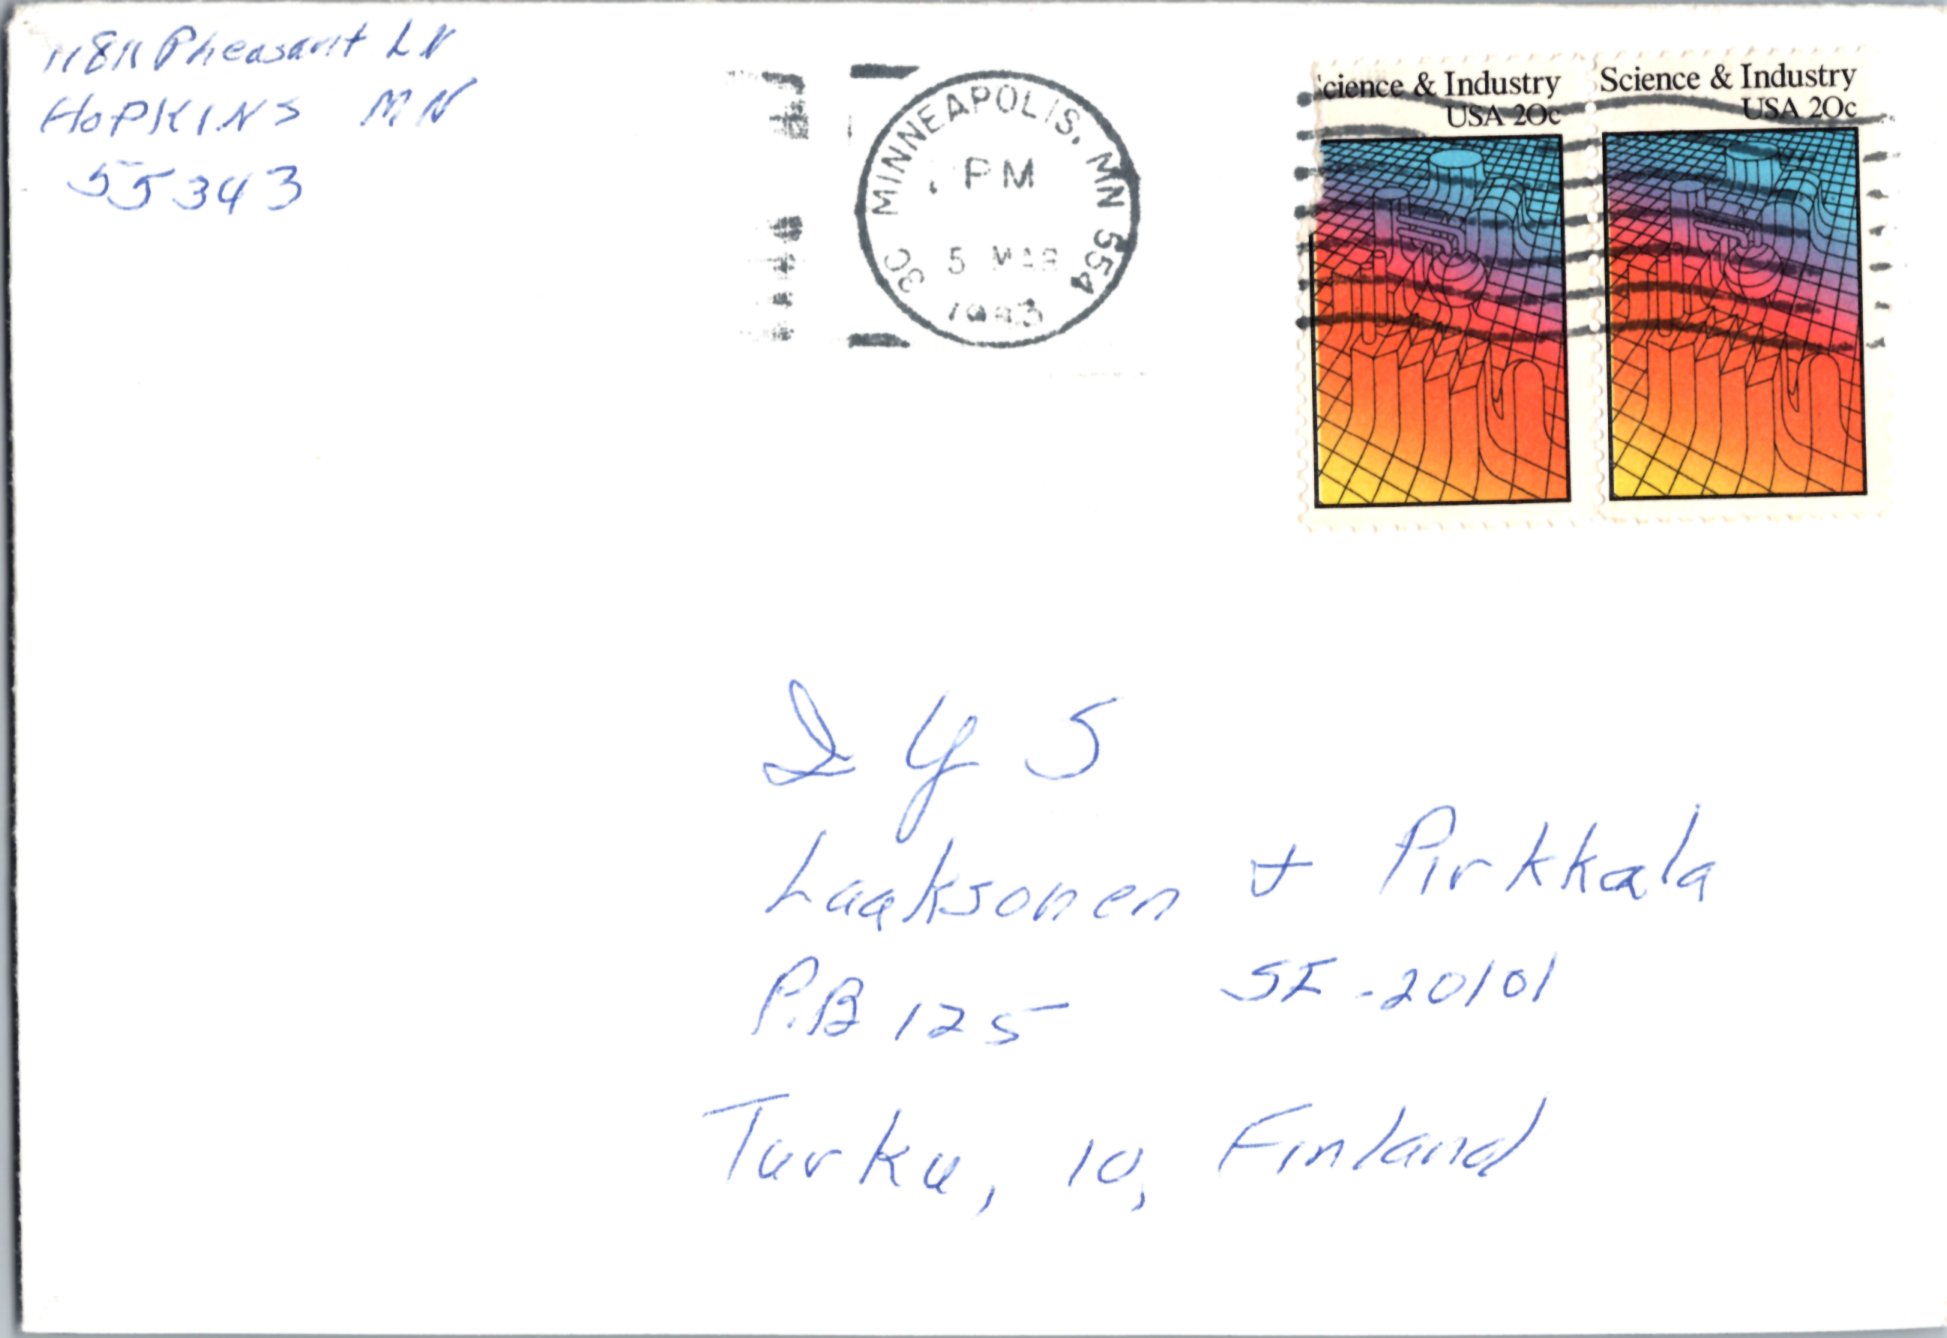 11811 Pheasant LN
HOPKINS MN
55343
MINNEAPOLIS, MN 554
PM
5 MAR
1983
Science & Industry
USA 20c
Science & Industry
USA 20c
I Y S
Laaksonen + Pirkkala
P.B 125 SI-20101
Turku, 10, Finland